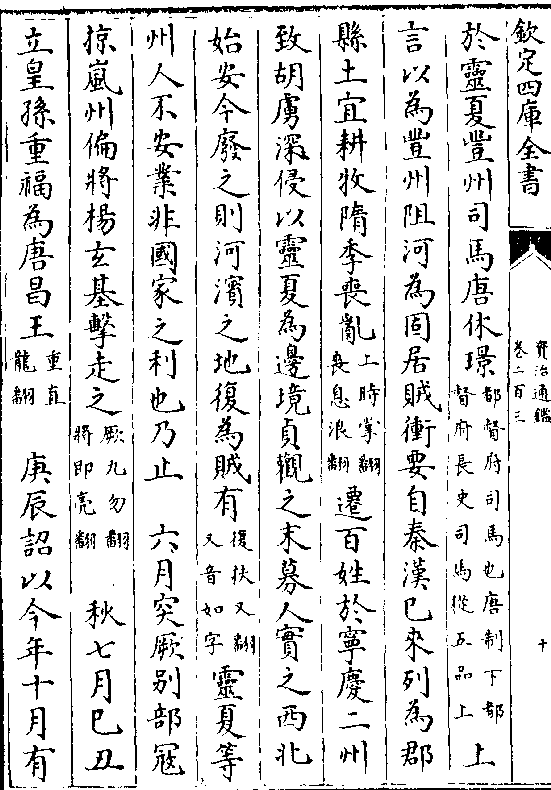 欽定四庫全書
資治通鑑
卷二百三
十
於靈夏豐州司馬唐休璟都督府司馬也唐制下都督府長史司馬從五品上上
言以為豐州阻河為固居賊衝要自秦漢已來列為郡
縣土宜耕牧隋季喪亂上時掌翻喪息浪翻遷百姓於寧慶二州
致胡虜深侵以靈夏為邊境貞觀之末募人實之西北
始安今廢之則河濱之地復為賊有復扶又翻又音如字靈夏等
州人不安業非國家之利也乃止　六月突厥别部寇
掠嵐州偏將楊玄基擊走之厥九勿翻將即亮翻　秋七月己丑
立皇孫重福為唐昌王重直龍翻　庚辰詔以今年十月有